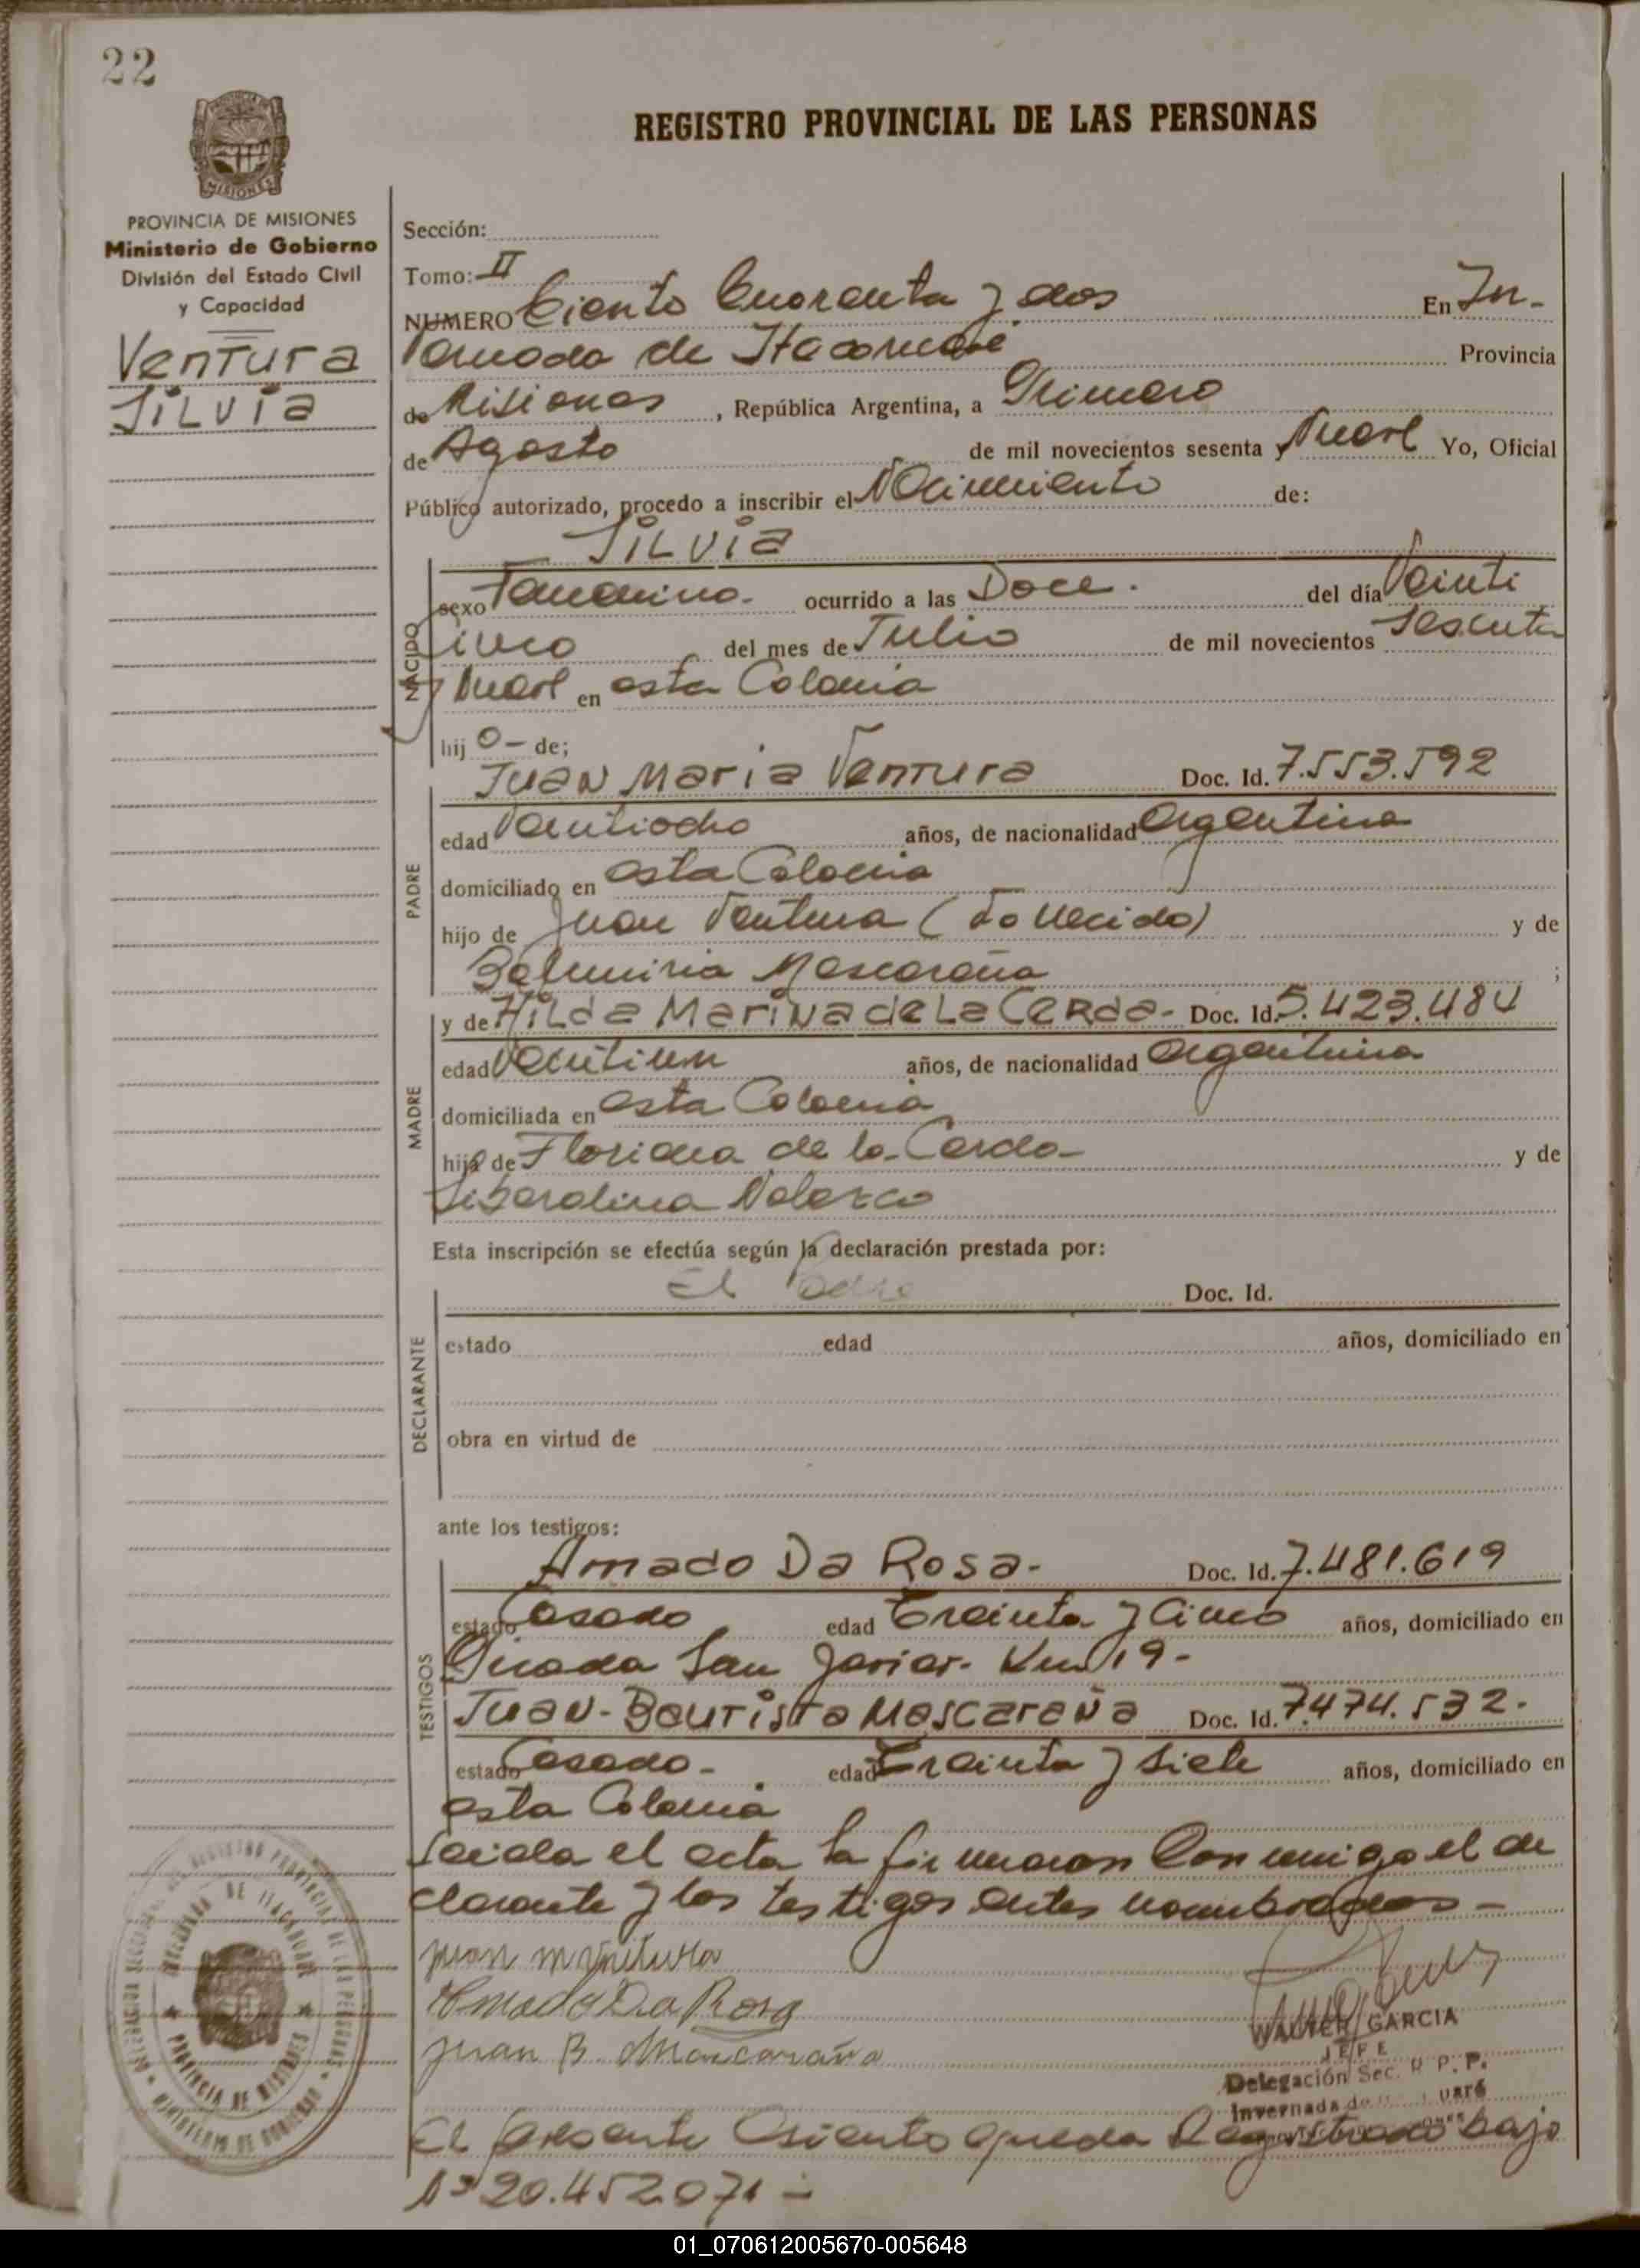 22
REGISTRO PROVINCIAL DE LAS PERSONAS
PROVINCIA DE MISIONES
Ministerio de Gobierno
División del Estado Civil
y Capacidad
Ventura
Silvia
Sección:
Tomo: II
NUMERO Ciento Cuarenta y dos En In-
vernada de Itacaruaré Provincia
de Misiones, República Argentina, a Primero
de Agosto de mil novecientos sesenta y Nueve Yo, Oficial
Público autorizado, procedo a inscribir el Nacimiento de:
Silvia
NACIDO
sexo Femenino. ocurrido a las Doce. del día Veinti
cinco del mes de Julio de mil novecientos Sesenta
y Nueve en esta Colonia
hij o- de;
PADRE
Juan Maria Ventura Doc. Id. 7.553.592
edad Veintiocho años, de nacionalidad Argentina
domiciliado en esta Colonia
hijo de Juan Ventura (Fallecido) y de
Belmiria Mascaraña ;
MADRE
y de Hilda Marina de La Cerda- Doc. Id. 5.423.484
edad Veintiun años, de nacionalidad Argentina
domiciliada en esta Colonia
hija de Floriana de la Cerda- y de
Liberalina Velazco
Esta inscripción se efectúa según la declaración prestada por:
DECLARANTE
El Padre Doc. Id.
estado edad años, domiciliado en
obra en virtud de
ante los testigos:
TESTIGOS
Amado Da Rosa- Doc. Id. 7.481.619
estado Casado edad Treinta y Cinco años, domiciliado en
Picada San Javier- Km 19-
Juan-Bautista Mascaraña Doc. Id. 7.474.532.
estado Casado- edad Treinta y Siete años, domiciliado en
esta Colonia
Leida el acta la firmaron Conmigo el de
clarante y los testigos antes nombrados-
Juan M Ventura
Amado Da Rosa
Juan B. Mascaraña
WALTER GARCIA
JEFE
Delegación Sec. R. P. P.
Invernada de
El presente Asiento queda Registrado bajo
Nº 20.452.071-
PROVINCIA DE MISIONES
01_070612005670-005648